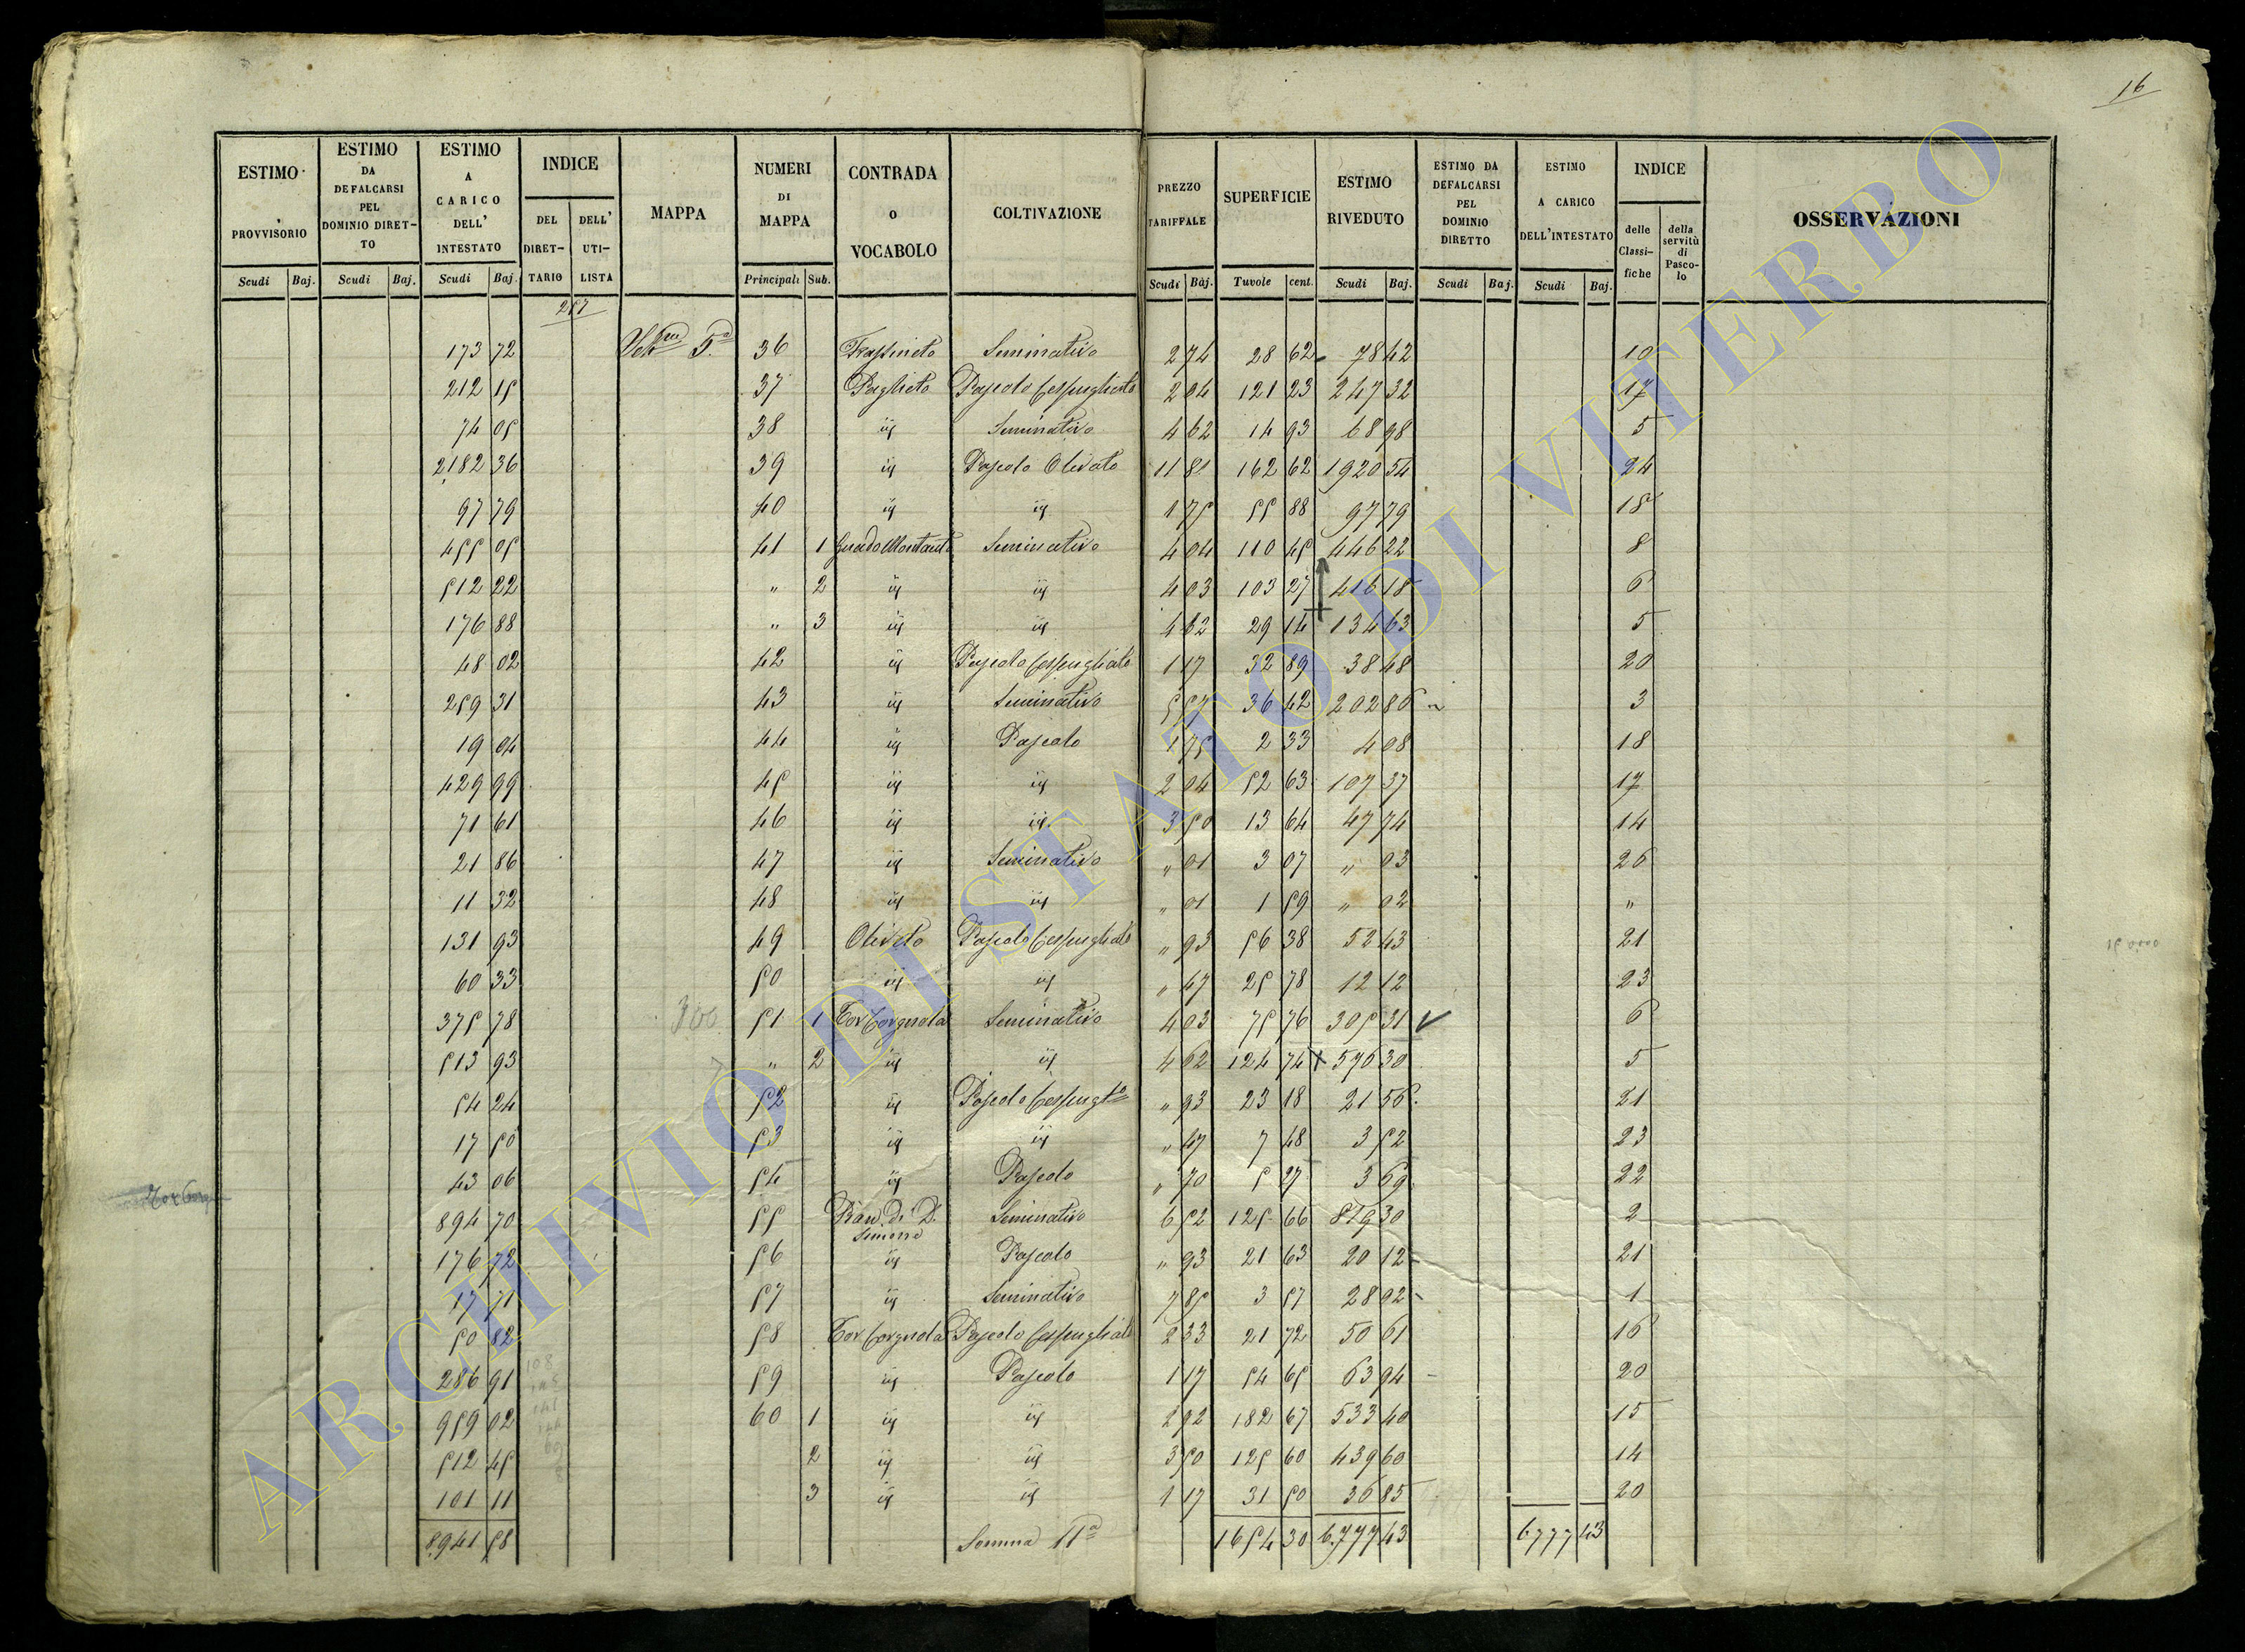 16
ESTIMO PROVVISORIO | ESTIMO DA DEFALCARSI PEL DOMINIO DIRETTO | ESTIMO A CARICO DELL' INTESTATO | INDICE DEL DIRETTARIO | DELL' UTILISTA | MAPPA | NUMERI DI MAPPA | CONTRADA O VOCABOLO | COLTIVAZIONE | PREZZO TARIFFALE | SUPERFICIE | ESTIMO RIVEDUTO | ESTIMO DA DEFALCARSI PEL DOMINIO DIRETTO | ESTIMO A CARICO DELL'INTESTATO | INDICE delle Classifiche | della servitù di Pascolo | OSSERVAZIONI
Scudi Baj. | Scudi Baj. | Scudi Baj. | Principali Sub. | Scudi Baj. | Tavole cent. | Scudi Baj. | Scudi Baj. | Scudi Baj.
257
173 72 | 5.a | 36 | Frassineto | Seminativo | 2 74 | 28 62 | 78 42 | 10
212 15 | 37 | Paglieto | Pascolo Cespugliato | 2 04 | 121 23 | 247 32 | 17
74 05 | 38 | id | Seminativo | 4 62 | 14 93 | 68 98 | 5
2182 36 | 39 | id | Pascolo Olivato | 11 81 | 162 62 | 1920 54 | 24
97 79 | 40 | id | id | 1 75 | 55 88 | 97 79 | 18
455 05 | 41 | 1 | Guado Montauto | Seminativo | 4 04 | 110 45 | 446 22 | 8
512 22 | " | 2 | id | id | 4 03 | 103 27 | 416 18 | 6
176 88 | " | 3 | id | id | 4 62 | 29 14 | 134 63 | 5
48 02 | 42 | id | Pascolo Cespugliato | 1 17 | 32 89 | 38 48 | 20
259 31 | 43 | id | Seminativo | 5 57 | 36 42 | 202 86 | 3
19 04 | 44 | id | Pascolo | 1 75 | 2 33 | 4 08 | 18
429 99 | 45 | id | id | 2 04 | 52 63 | 107 37 | 17
71 61 | 46 | id | id | 3 50 | 13 64 | 47 74 | 14
21 86 | 47 | id | Seminativo | " 01 | 3 07 | " 03 | 26
11 32 | 48 | id | id | " 01 | 1 59 | " 02 | "
131 93 | 49 | Oliveto | Pascolo Cespugliato | " 93 | 56 38 | 52 43 | 21
60 33 | 50 | id | id | " 47 | 25 78 | 12 12 | 23
375 78 | 300 | 51 | 1 | Tor Corgnola | Seminativo | 4 03 | 75 76 | 305 31 | 6
513 93 | " | 2 | id | id | 4 62 | 124 74 | 576 30 | 5
54 24 | 52 | id | Pascolo Cespugto | " 93 | 23 18 | 21 56 | 21
17 50 | 53 | id | id | " 47 | 7 48 | 3 52 | 23
43 06 | 54 | id | Pascolo | " 70 | 5 27 | 3 69 | 22
894 70 | 55 | Pian di D. Simone | Seminativo | 6 52 | 125 66 | 819 30 | 2
176 72 | 56 | id | Pascolo | " 93 | 21 63 | 20 12 | 21
17 71 | 57 | id | Seminativo | 7 85 | 3 57 | 28 02 | 1
50 82 | 58 | Tor Corgnola | Pascolo Cespugliato | 2 33 | 21 72 | 50 61 | 16
286 91 | 59 | id | Pascolo | 1 17 | 54 65 | 63 94 | 20
959 02 | 60 | 1 | id | id | 2 92 | 182 67 | 533 40 | 15
512 45 | 2 | id | id | 3 50 | 125 60 | 439 60 | 14
101 11 | 3 | id | id | 1 17 | 31 50 | 36 85 | 20
8941 58 | Somma 11.a | 1654 30 | 6777 43 | 6777 43
ARCHIVIO DI STATO DI VITERBO